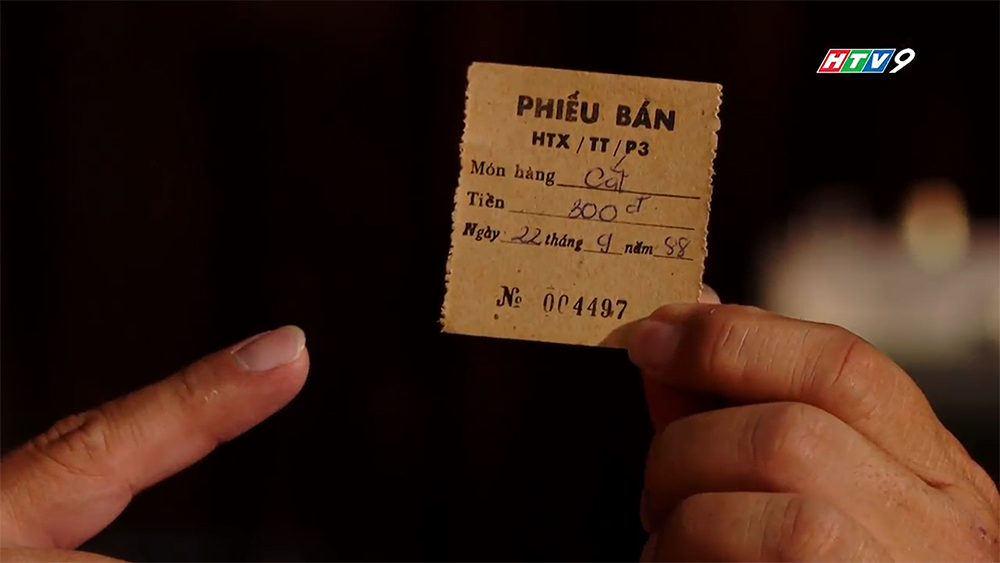 HTV9
PHIẾU BÁN
HTX / TT / P3
Món hàng Cát
Tiền 300đ
Ngày 22 tháng 9 năm 88
№ 004497